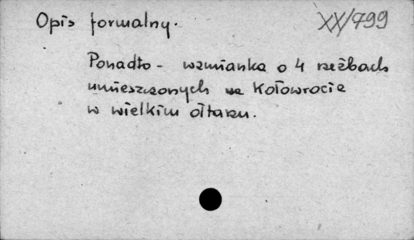 Opis formalny.
XX/799
Ponadto - wzmianka o 4 rzeźbach
umieszczonych na Kołowrocie
w wielkim ołtarzu.